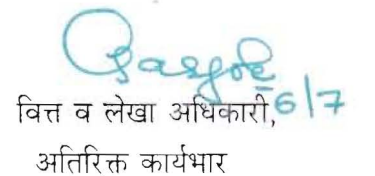 6/7
वित्त व लेखा अधिकारी,
अतिरिक्त कार्यभार